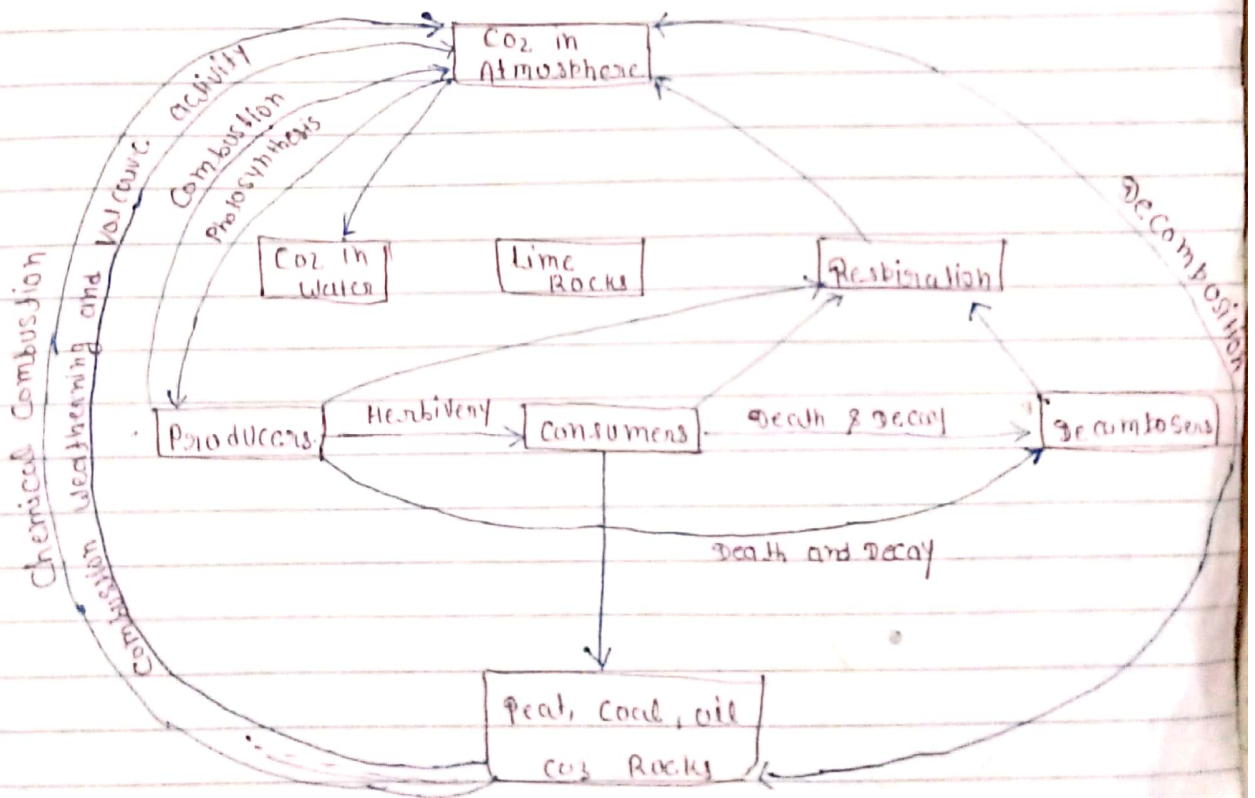 CO2 in
Atmosphere
Chemical Combustion
Combustion Weathering and Volcanic activity
Combustion
Photosynthesis
Decomposition
CO2 in
Water
Lime
Rocks
Respiration
Producers
Herbiveny
Consumers
Death & Decay
Decomposers
Death and Decay
Peat, Coal, oil
CO3 Rocks